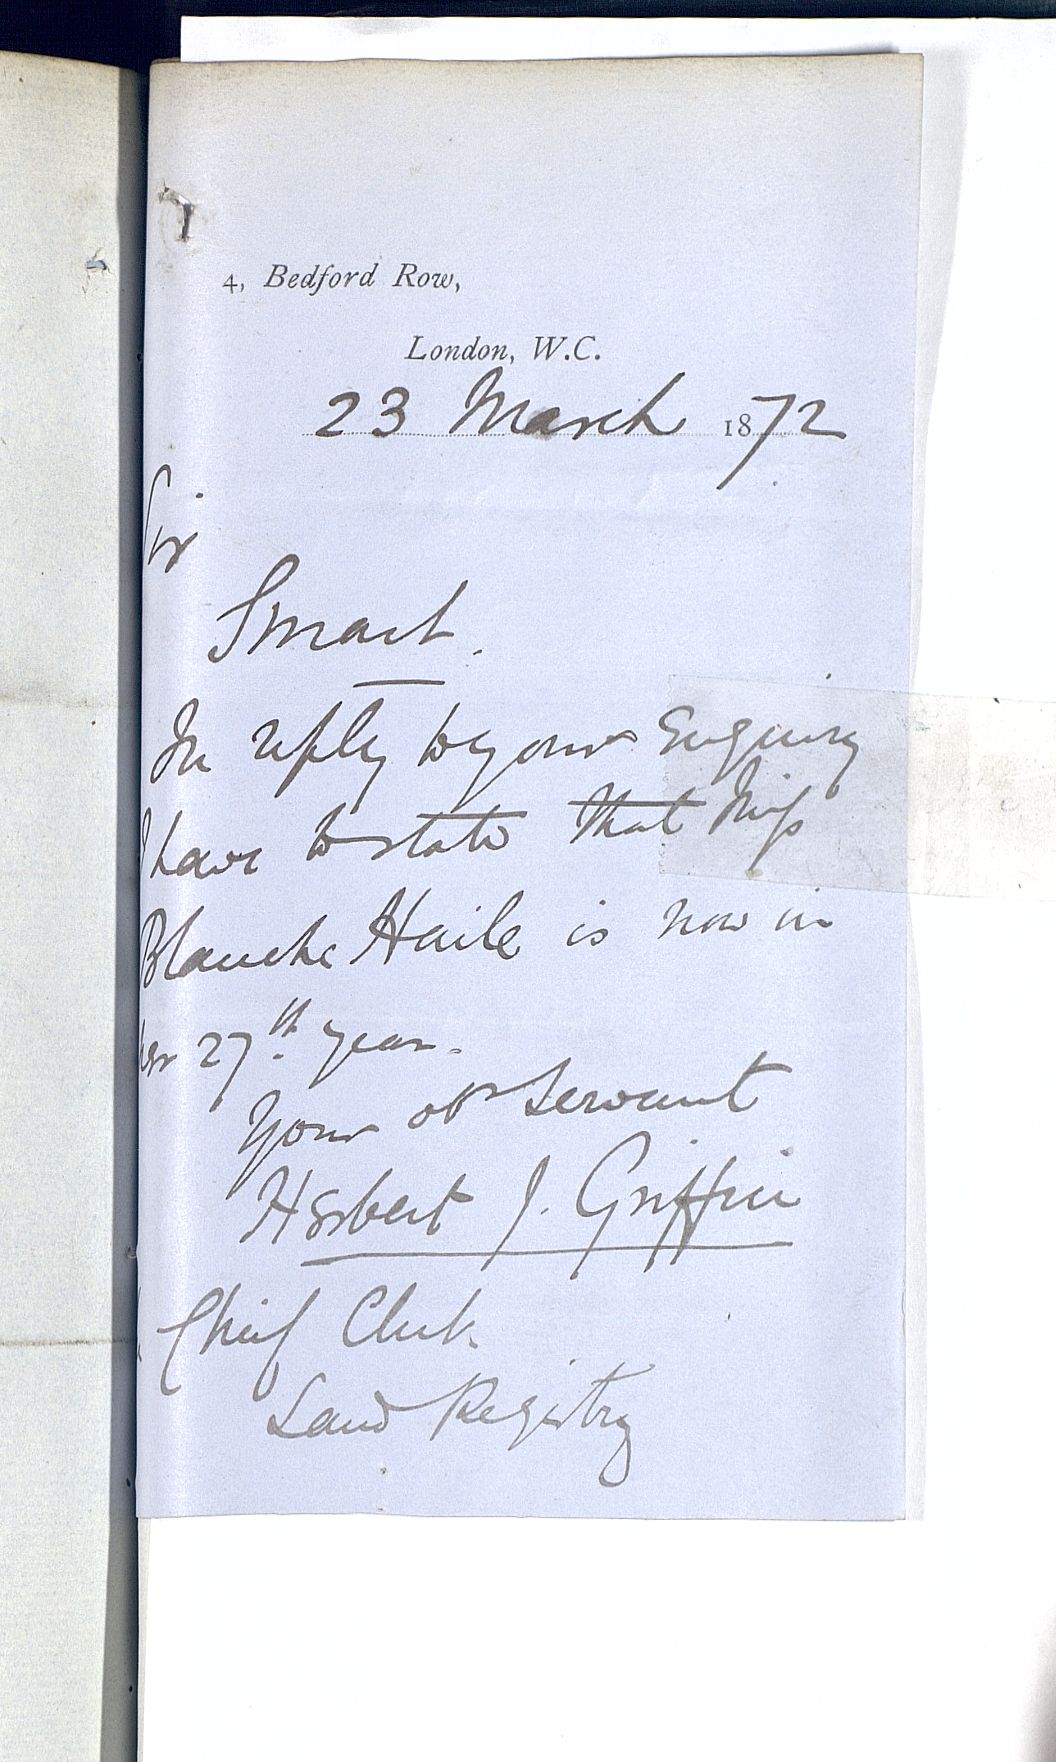 4, Bedford Row,
London, W.C.
23 March 1872
Sir
Smart.
In reply to your Enquiry
I have to state that Miss
Blanche Haile is now in
her 27th year.
Your obt Servant
Herbert J. Griffin
Chief Clerk
Land Registry